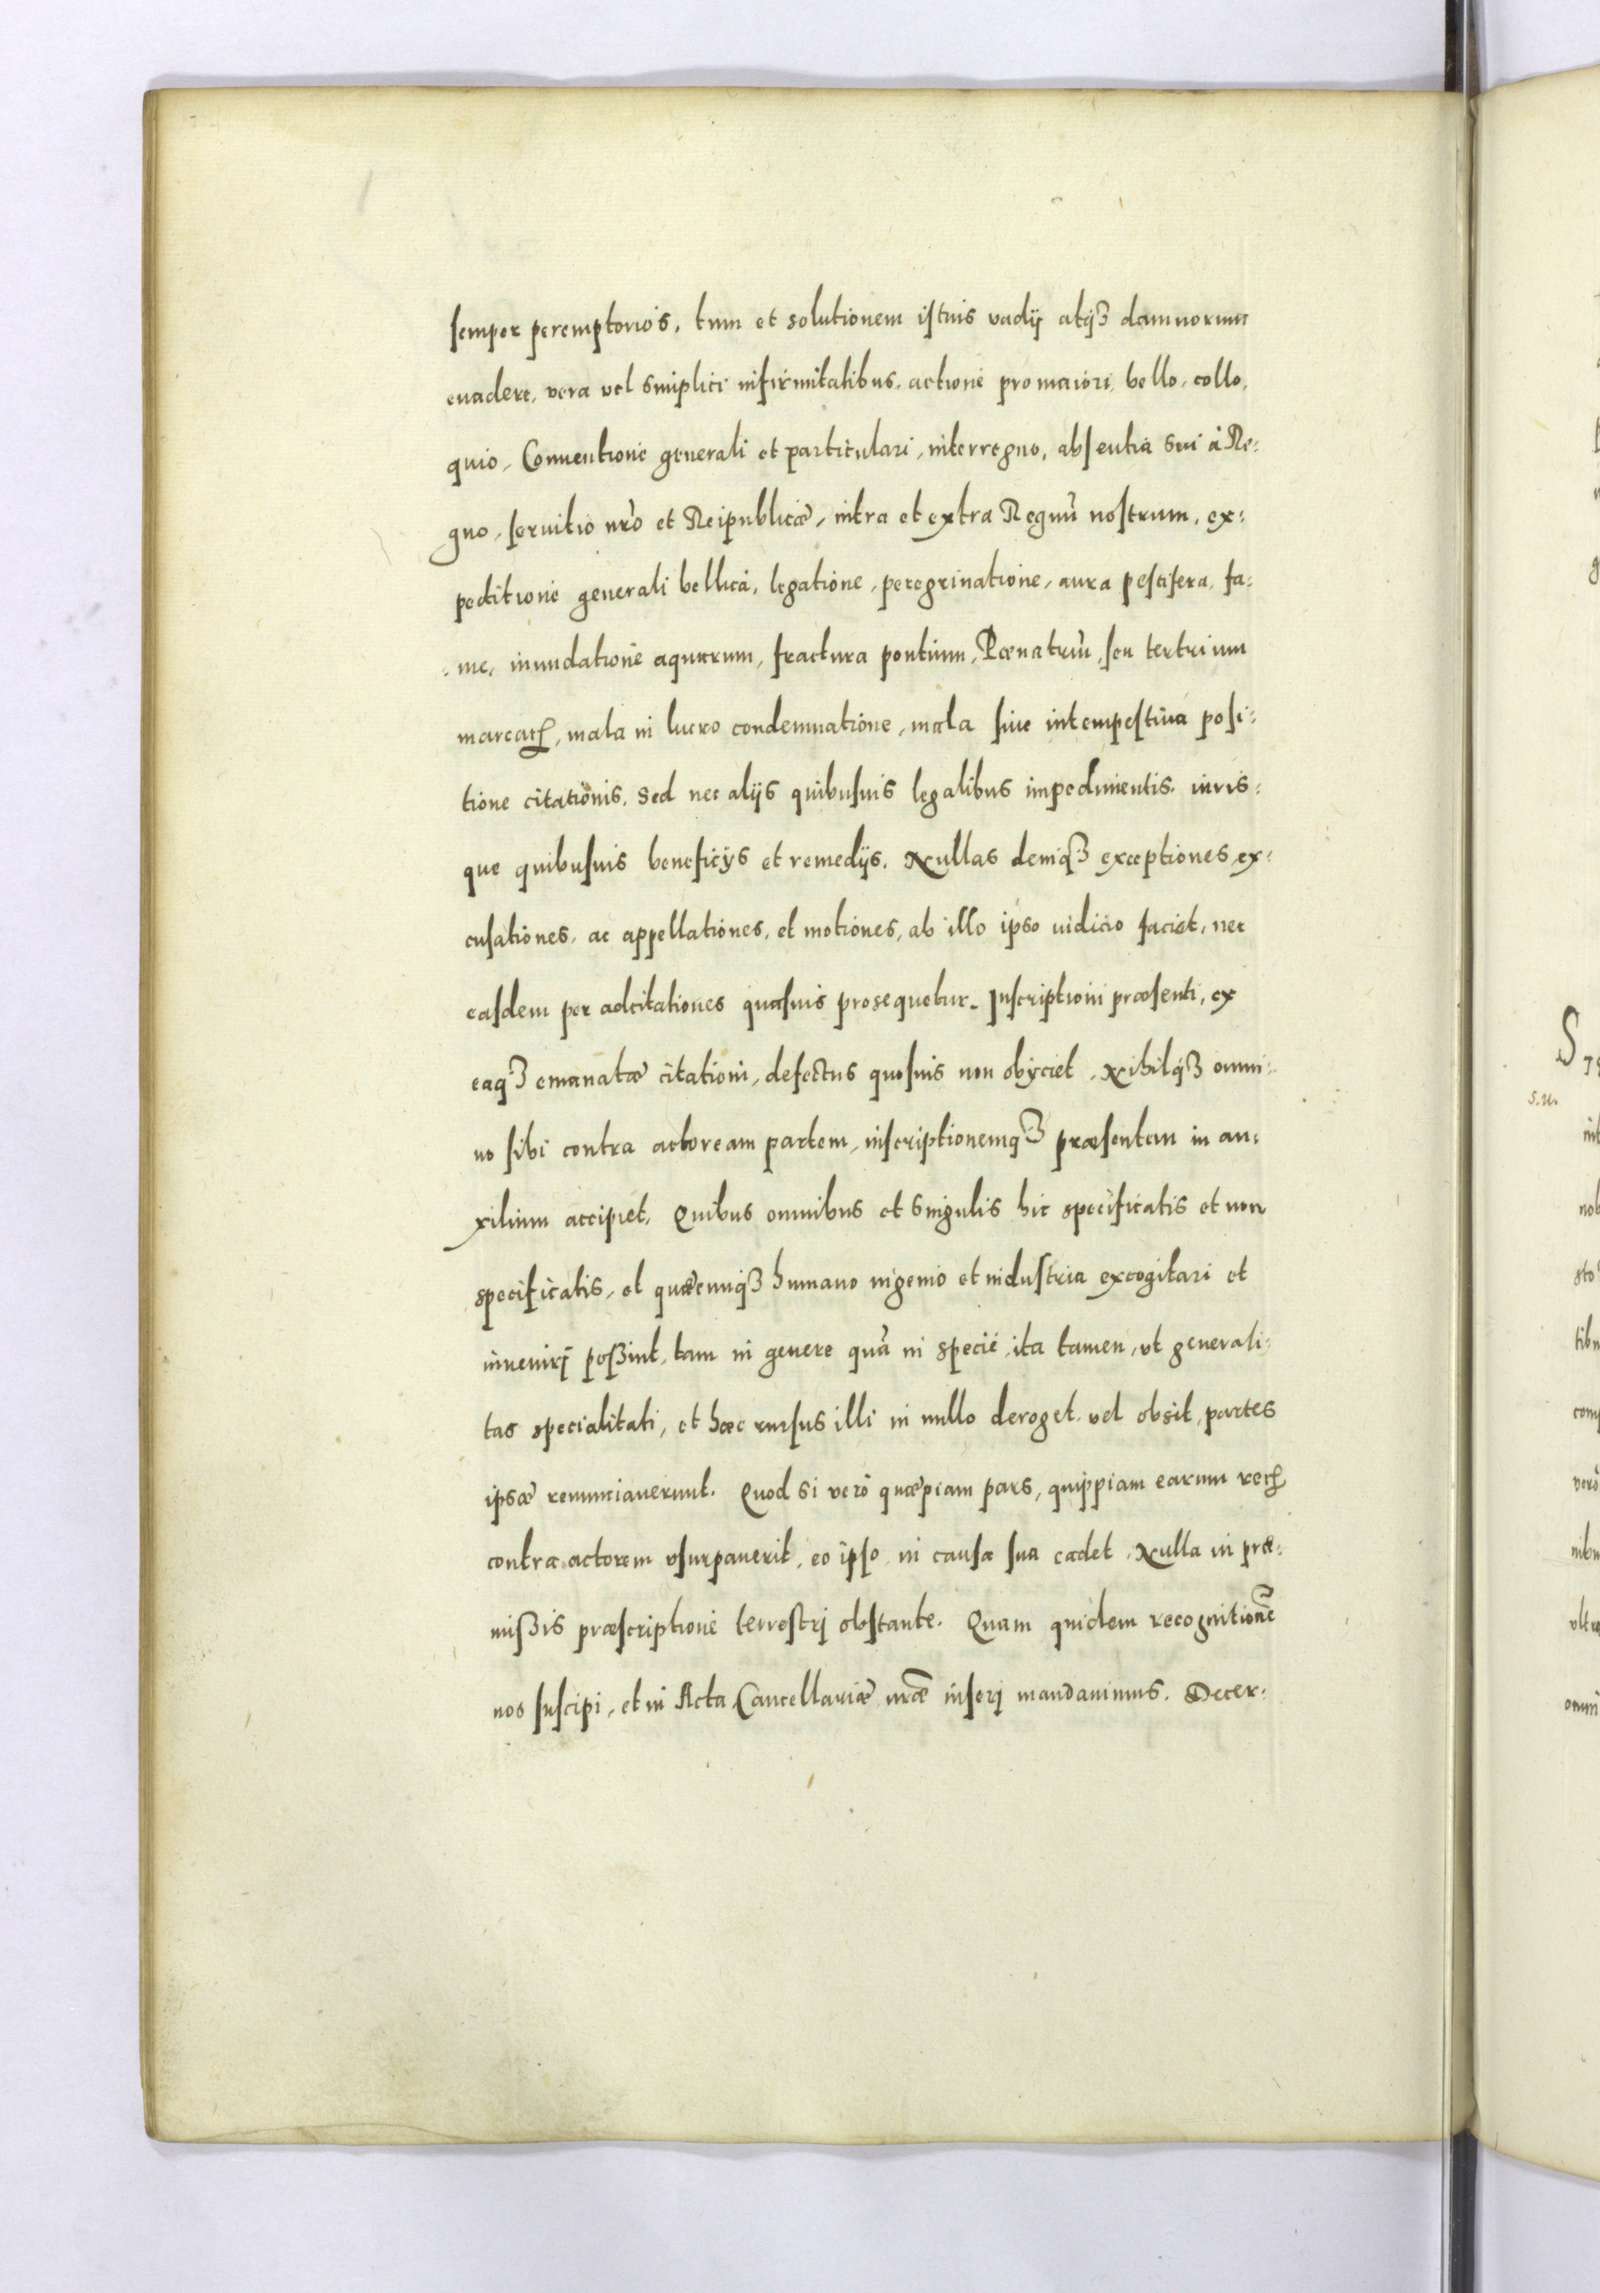 semper peremptorios, tum et solutionem istuis vadij atq3 damnorum
euadere, vera vel simplici infirmitatibus, actione pro maiori, bello, collo,
quio, Conuentione generali et particulari, interregno, absentia sui à Re,
gno, seruitio nr̄o et Reipublicæ, intra et extra Regnū nostrum, ex,
peditione generali bellica, legatione, peregrinatione, aura pestifera, fa,
me, inundatione aquarum, fractura pontium, Pœnatriū, seu tertrium
marcaꝝ, mala in lucro condemnatione, mala siue intempestiua posi,
tione citationis, sed nec alijs quibusuis legalibus impedimentis, iuris,
que quibusuis beneficijs et remedijs. Nullas deniq3 exceptiones, ex,
cusationes, ac appellationes, et motiones, ab illo ipso iudicio faciet, nec
easdem per adcitationes quasuis prosequetur. Inscriptioni præsenti, ex
eaq3 emanatæ citationi, defectus quosuis non obijciet. Nihilq3 omni,
no sibi contra actoream partem, inscriptionemq3 præsentem in au,
xilium accipiet. Quibus omnibus et singulis hic specificatis et non
specificatis, et quæcunq3 humano ingenio et industria excogitari et
inueniri possint, tam in genere quā in specie, ita tamen, vt generali,
tas specialitati, et hæc rursus illi in nullo deroget vel obsit, partes
ipsæ renunciauerunt. Quod si verò quæpiam pars, quippiam earum reꝝ
contra actorem vsurpauerit, eo ipso in causa sua cadet. Nulla in præ,
missis præscriptione terrestri obstante. Quam quidem recognitionē
nos suscipi, et in Acta Cancellariæ nr̄æ inseri mandauimus. Decer,
S
s.u.